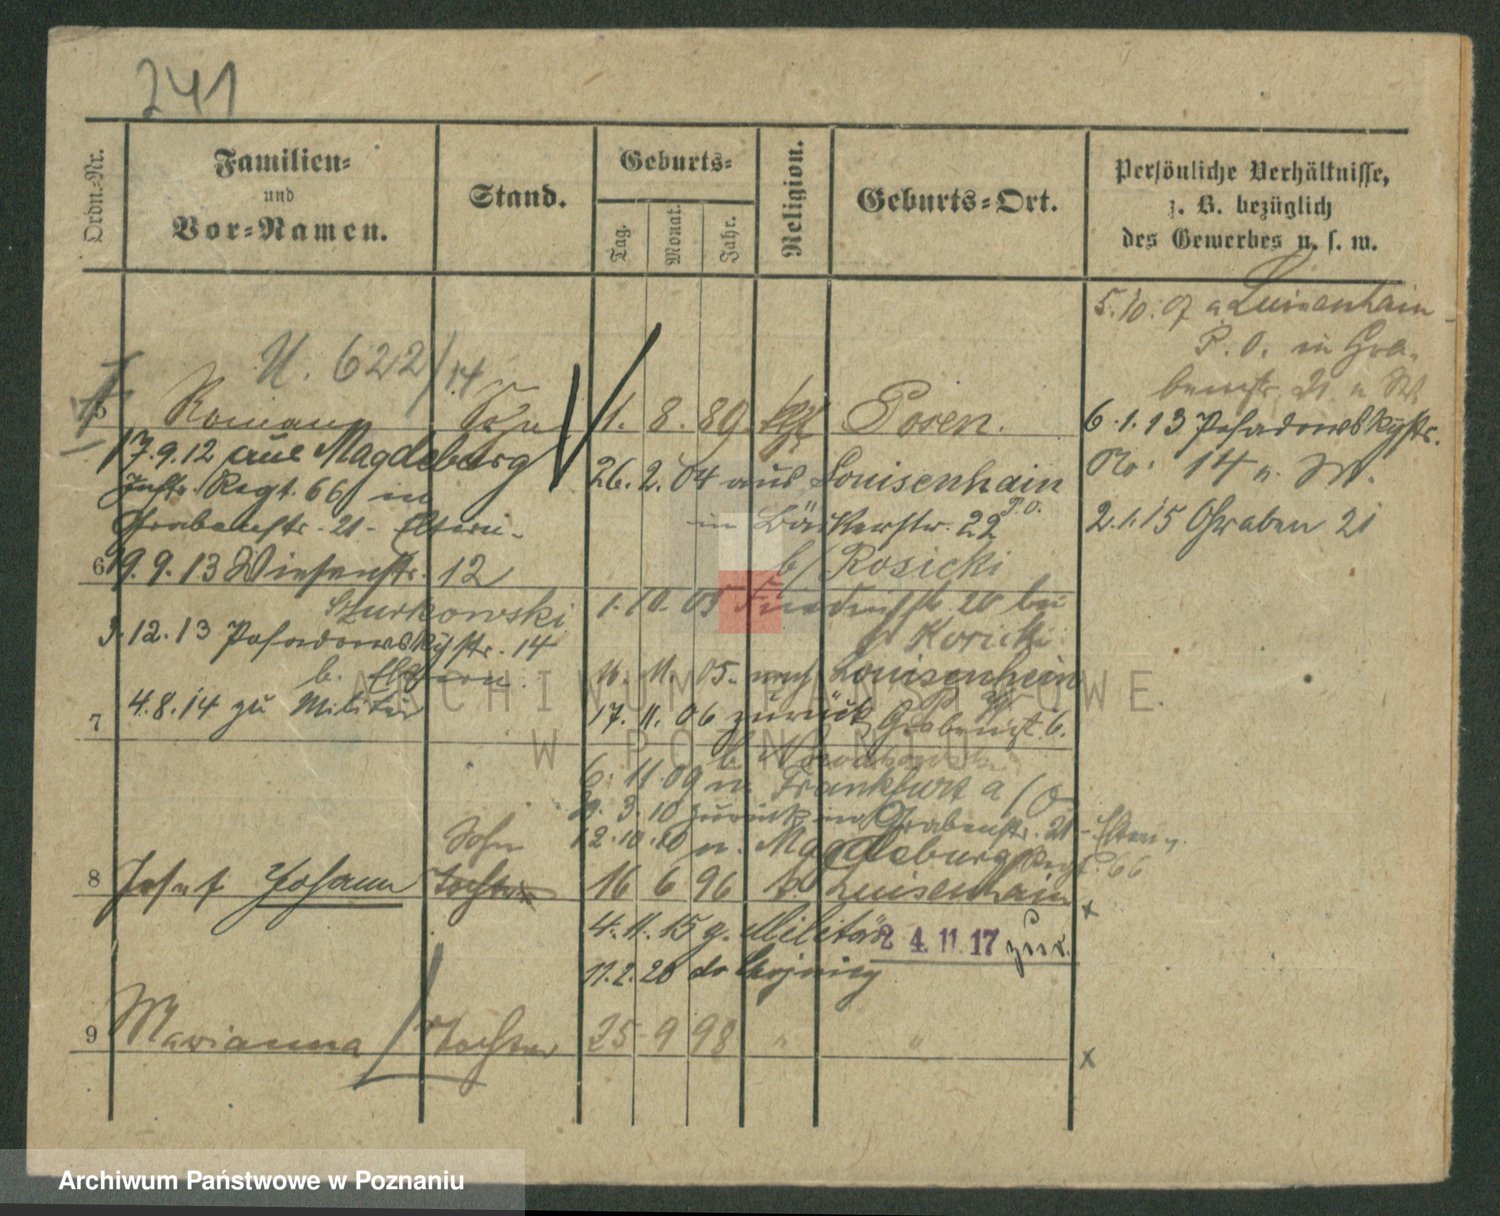 241
Ordn.-Nr.
Familien-
und
Vor-Namen.
Stand.
Geburts-
Tag.
Monat.
Jahr.
Religion.
Geburts-Ort.
Persönliche Verhältnisse,
z. B. bezüglich
des Gewerbes u. s. w.
5.10.07 Luisenhain
P. O. in Gra-
U. 622/14
5 Roman Sohn 1. 8. 89. Posen.
6.1.13 Posadowskystr.
No. 14 n. W.
2.1.15 Graben 21
17.9.12 aus Magdeburg
Inftr. Regt. 66 in
Grabenstr. 21 - Eltern -
6 19.9.13 Wiesenstr. 12
Szurkowski
3.12.13 Posadowskystr. 14
b. Eltern.
7 4.8.14 zu Militär
26.2.04 aus Louisenhain
P.O.
in Bäckerstr. 22
b/ Rosicki
1.10.05 20 bei
Koricki
11.05. nach Louisenhein
17.11.06 zurück Grabenst. 6.
6.11.09 n. Frankfurt a/O
3.10 zurück in Grabenstr. 21 - Eltern
12.10.10 n. Magdeburg Regt. 66
Sohn
8 Josef Johann Tochter 16 6 96 k. Luisenhain x
4.11.15 z. Militär 2 4. 11. 17 zur.
11.2.20 do
9 Marianna / Tochter 25 9 98 " " x
ARCHIWUM PAŃSTWOWE
W POZNANIU
Archiwum Państwowe w Poznaniu